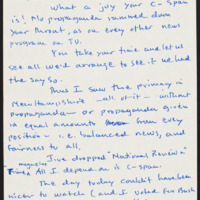 What a joy your C-Span
is! No propaganda rammed down
your throat, as on every other news
program on TV.
You take your time and let us
see all we'd arrange to see if we had
the say so.
Thus I saw the primary in
New Hampshire - all of it - without
propaganda - or propaganda given
in equal amounts from every
position - i.e. balanced news, and
fairness to all.
I've dropped "National Review"
magazine
Time. All I depend is C-Span.
The day today couldn't have been
nicer to watch (and I voted for Bush